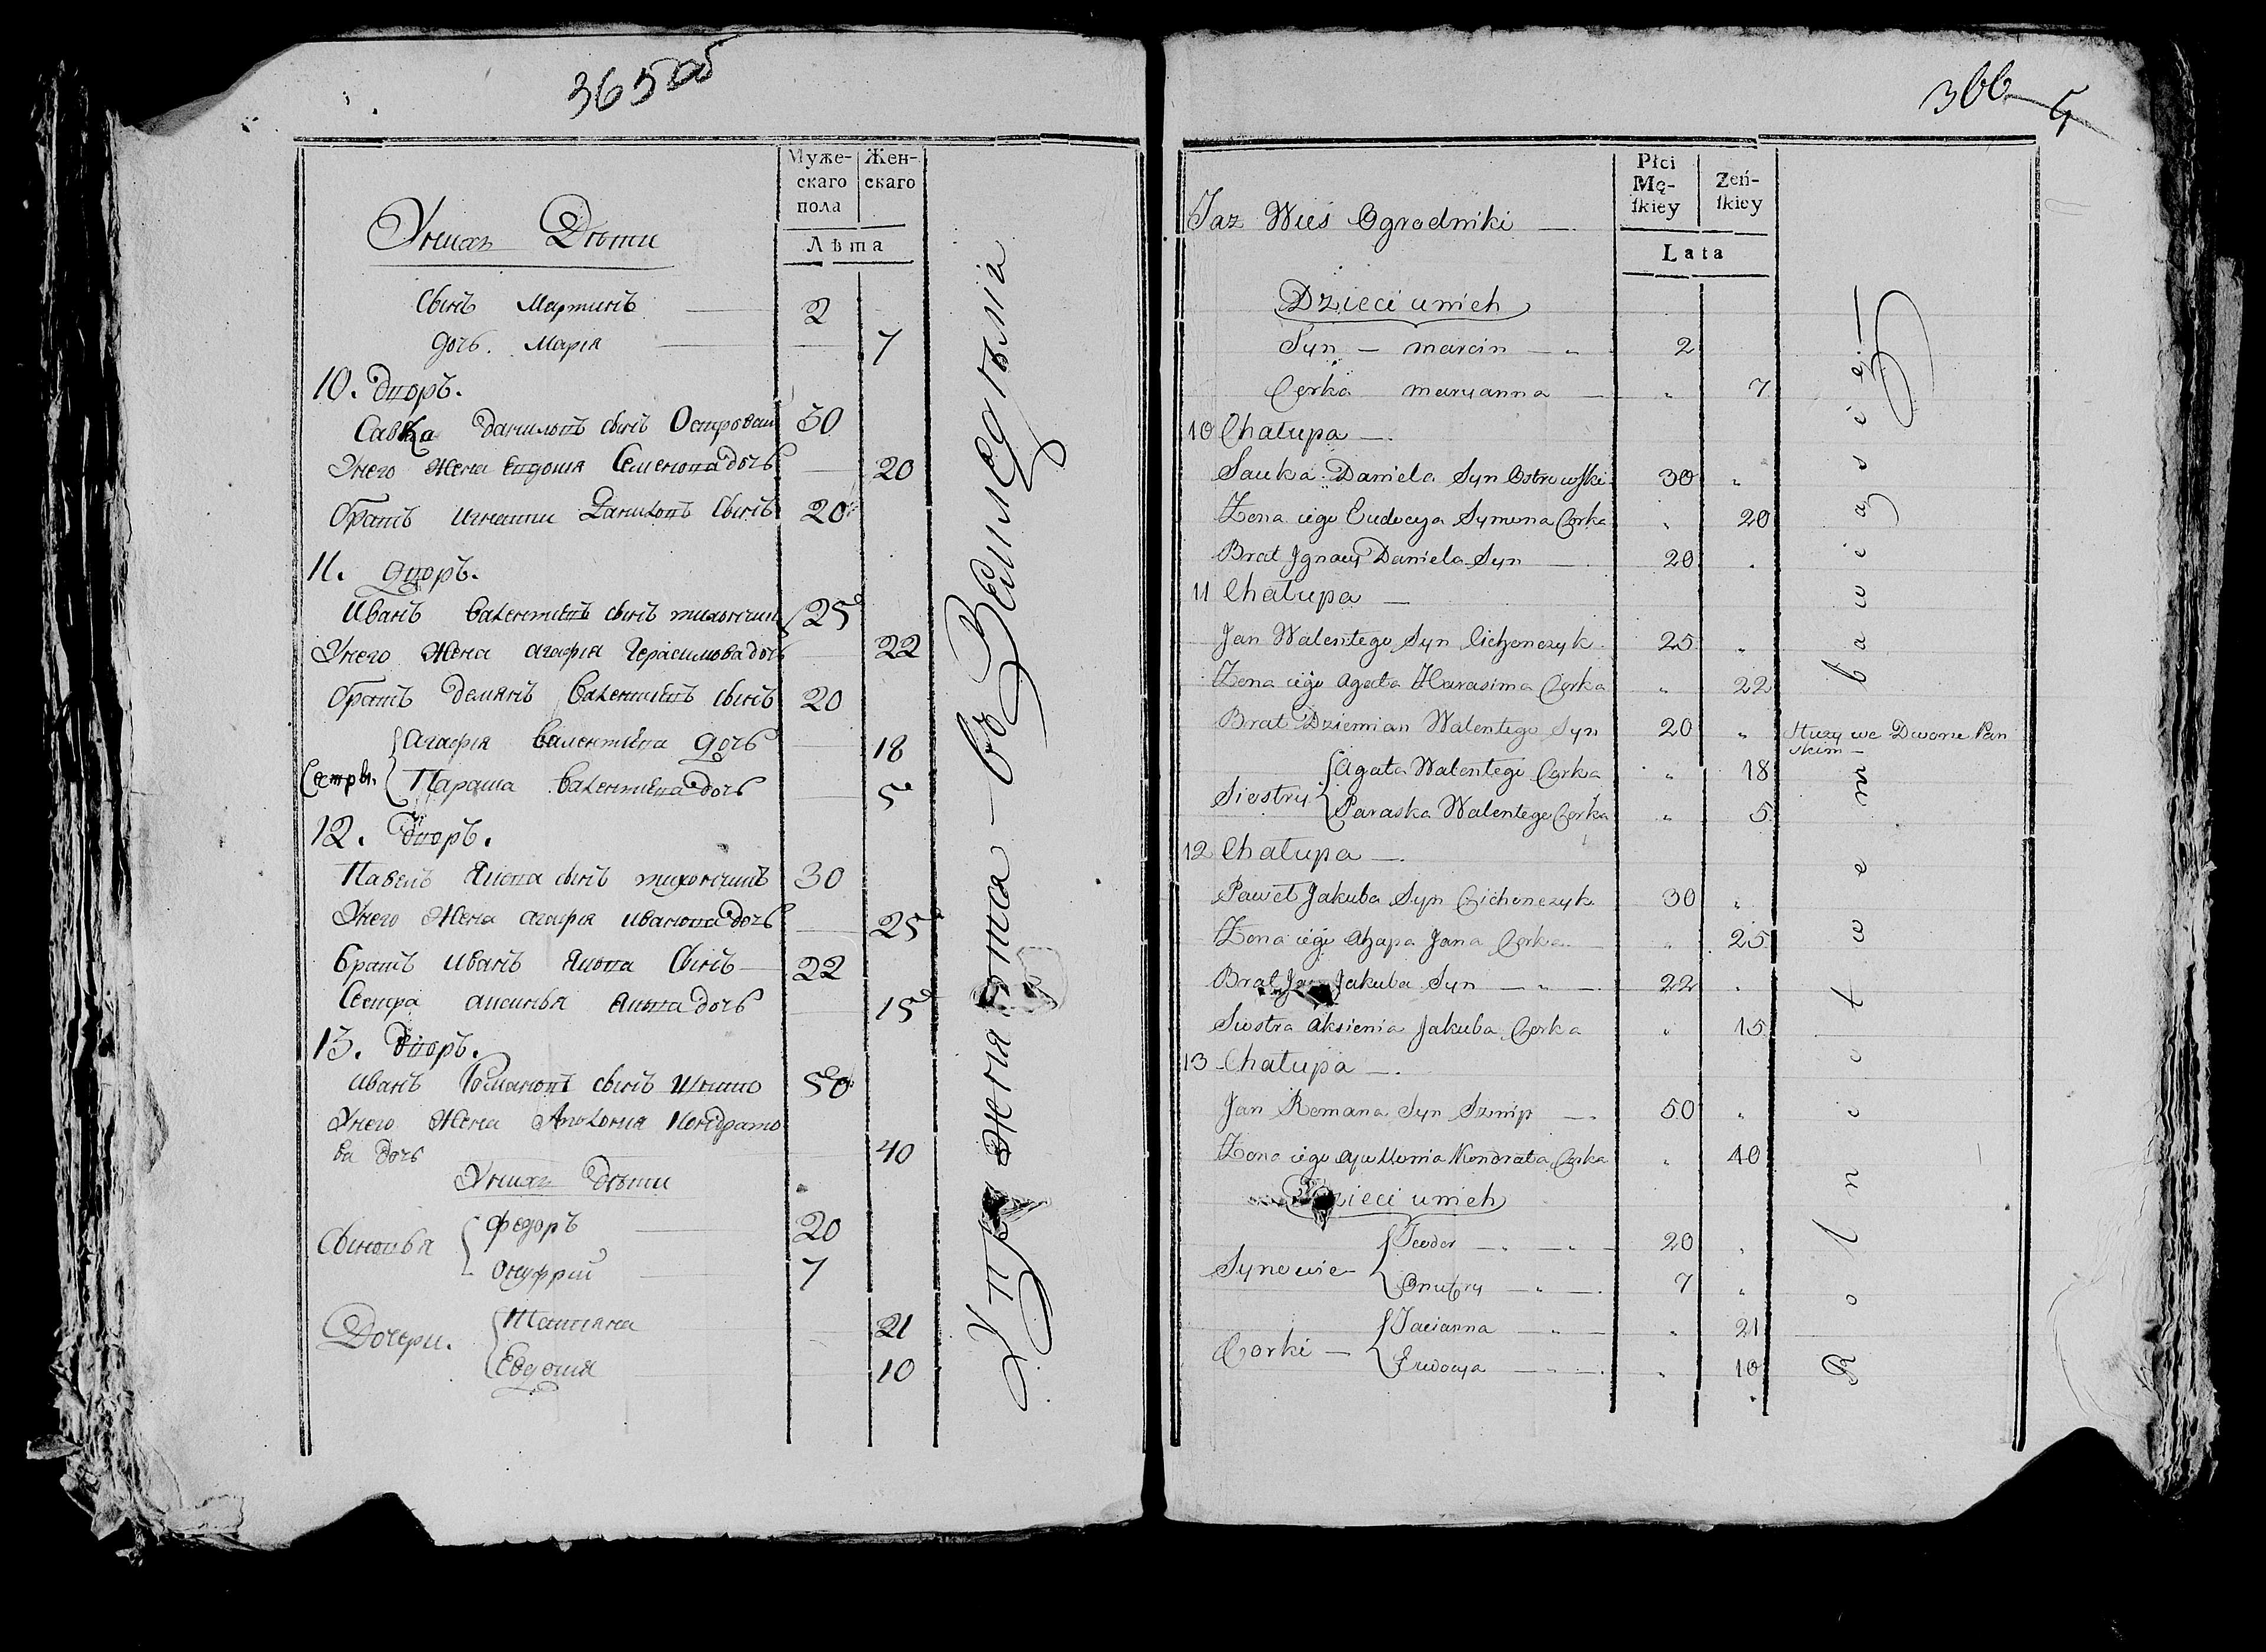 365 об
Муже-
скаго
пола
Жен-
скаго
Лѣта
У нихъ Дѣти
Сынъ Мартинъ 2
дочь Марія 7
10. Дворъ.
Савка Даниловъ сынъ Островский 30
У него жена Евдокия Семенова дочь 20
Братъ Игнатий Даниловъ сынъ 20
11. дворъ.
Иванъ Валентиевъ сынъ 25
У него жена агафия Герасимова дочь 22
Братъ демянъ Валентиевъ сынъ 20
Сестры агафия Валентиева дочь 18
Параска Валентиева дочь 5
12. Дворъ.
Павелъ Якова сынъ 30
У него жена агафия Иванова дочь 25
Братъ Иванъ Якова сынъ 22
Сестра аксинья Якова дочь 15
13. Дворъ.
Иванъ Романовъ сынъ 50
У него жена Аполония Кондрато
ва дочь 40
У нихъ дѣти
Сыновья Федоръ 20
Онуфрий 7
Дочери. Татияна 21
Евдокия 10
въ Земледѣлии
366 5
Płci
Mę-
skiey
Zeń-
skiey
Lata
Taz Wieś Ogrodniki —
Dzieci u nich
Syn — marcin — „ 2
Corka maryanna — „ 7
10 Chałupa —.
Sauka Daniela Syn Ostrowski 30 „
Zona iego Eudocya Symona Corka „ 20
Brat Jgnacy Daniela Syn — 20 „
11 Chałupa —
Jan Walentego Syn Cichonczyk 25 „
Zona iego agata Harasima Corka „ 22
Brat Dziemian Walentego Syn 20 „ Służy we Dworze Pań
skim —
Siostry Agata Walentego Corka „ 18
Paraska Walentego Corka „ 5
12 Chałupa —.
Paweł Jakuba Syn Cichonczyk 30 „
Zona iego Ahapa Jana Corka — „ 25
Brat Jan Jakuba Syn — „ — 22 „
Siostra Aksienia Jakuba Corka „ 15
13 Chałupa —.
Jan Romana Syn Sznip — 50 „
Zona iego Apollonia Kondrata Corka „ 40
Dzieci u nich
Synowie Teodor — „ — „ 20 „
Onufry — „ — 7 „
Corki — Tacianna — „ — „ 21
Eudocya — „ — „ 10
Rolnictwem bawią się